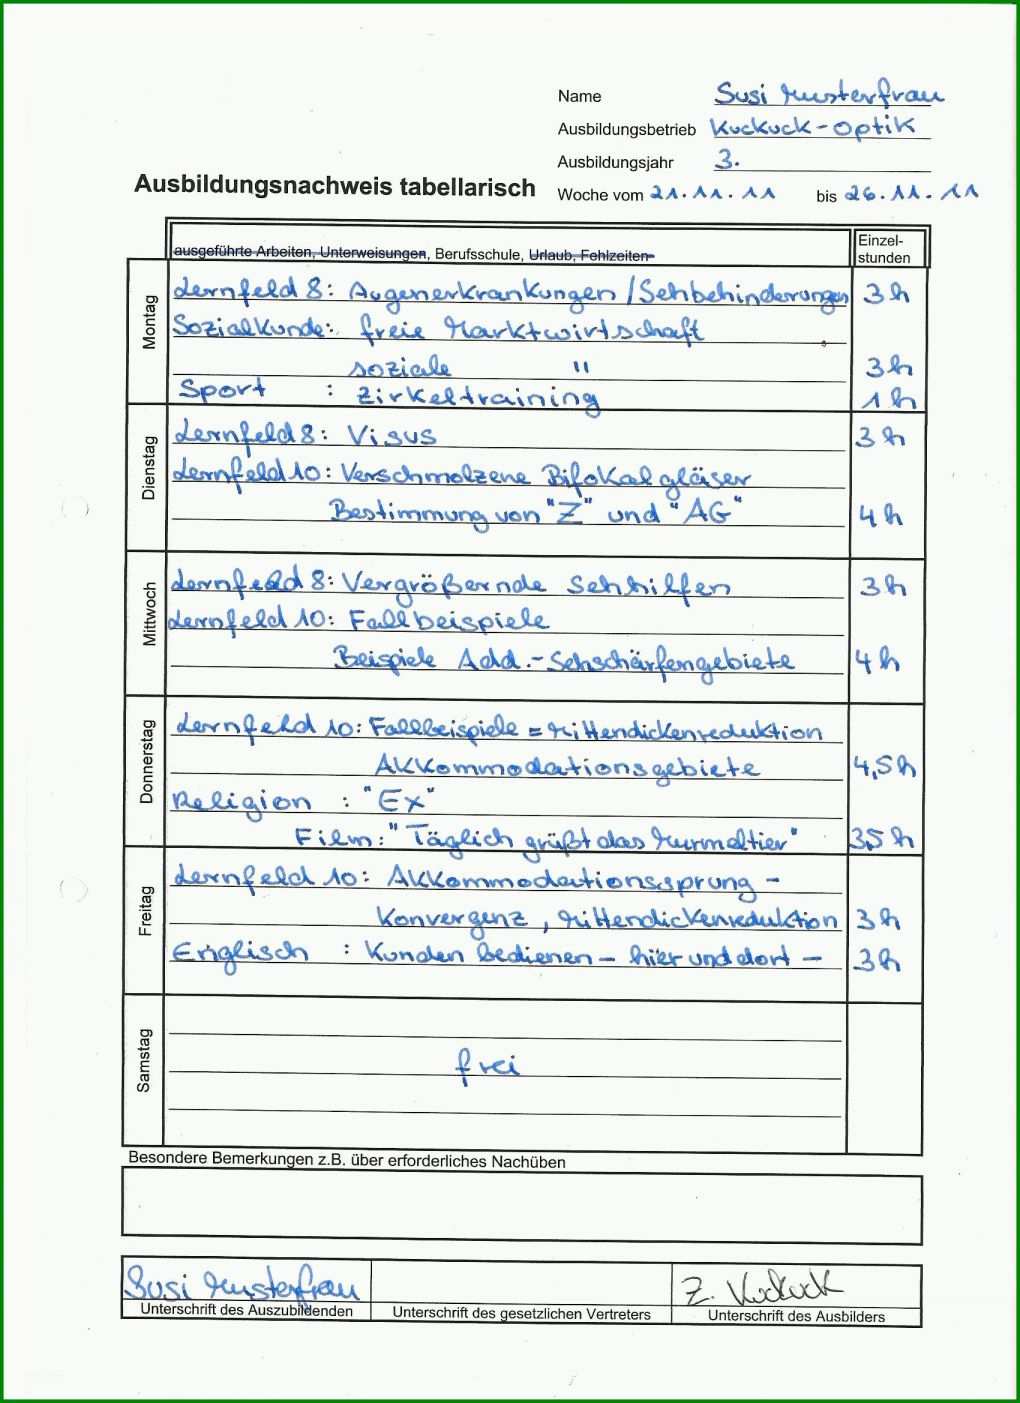 Name Susi Musterfrau
Ausbildungsbetrieb Kuckuck-Optik
Ausbildungsjahr 3.
Ausbildungsnachweis tabellarisch
Woche vom 21.11.11 bis 26.11.11
ausgeführte Arbeiten, Unterweisungen, Berufsschule, Urlaub, Fehlzeiten
Einzel-
stunden
Montag
Lernfeld 8: Augenerkrankungen/Sehbehinderungen 3h
Sozialkunde: freie Marktwirtschaft
soziale " 3h
Sport : Zirkeltraining 1h
Dienstag
Lernfeld 8: Visus 3h
Lernfeld 10: Verschmolzene Bifokalgläser
Bestimmung von "Z" und "AG" 4h
Mittwoch
Lernfeld 8: Vergrößernde Sehhilfen 3h
Lernfeld 10: Fallbeispiele
Beispiele Add.-Sehschärfengebiete 4h
Donnerstag
Lernfeld 10: Fallbeispiele = Mittendickenreduktion
Akkommodationsgebiete 4,5h
Religion : "Ex"
Film: "Täglich grüßt das Murmeltier" 3,5h
Freitag
Lernfeld 10: Akkommodationssprung -
Konvergenz, Mittendickenreduktion 3h
Englisch : Kunden bedienen - hier und dort - 3h
Samstag
frei
Besondere Bemerkungen z.B. über erforderliches Nachüben
Susi Musterfrau
Z. Kuckuck
Unterschrift des Auszubildenden
Unterschrift des gesetzlichen Vertreters
Unterschrift des Ausbilders